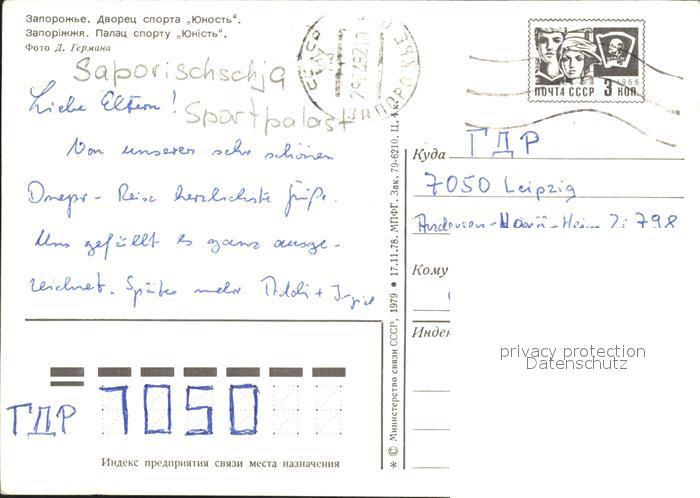 Запорожье. Дворец спорта „Юность“.
Запоріжжя. Палац спорту „Юність“.
Фото Д. Германа
Saporischschja
Sportpalast
Liebe Eltern!
Von unserer sehr schönen
Dnepr-Reise herzlichste Grüße.
Uns gefällt es ganz ausge-
zeichnet. Später mehr
СССР
ЗАПОРОЖЬЕ
1966
ПОЧТА СССР 3 КОП.
Куда ГДР
7050 Leipzig
798
Кому
Индек
privacy protection
Datenschutz
* © Министерство связи СССР, 1979 ● 17.11.78. МПФГ. Зак. 79-6210. Ц. 4 к.
ГДР 7050
Индекс предприятия связи места назначения